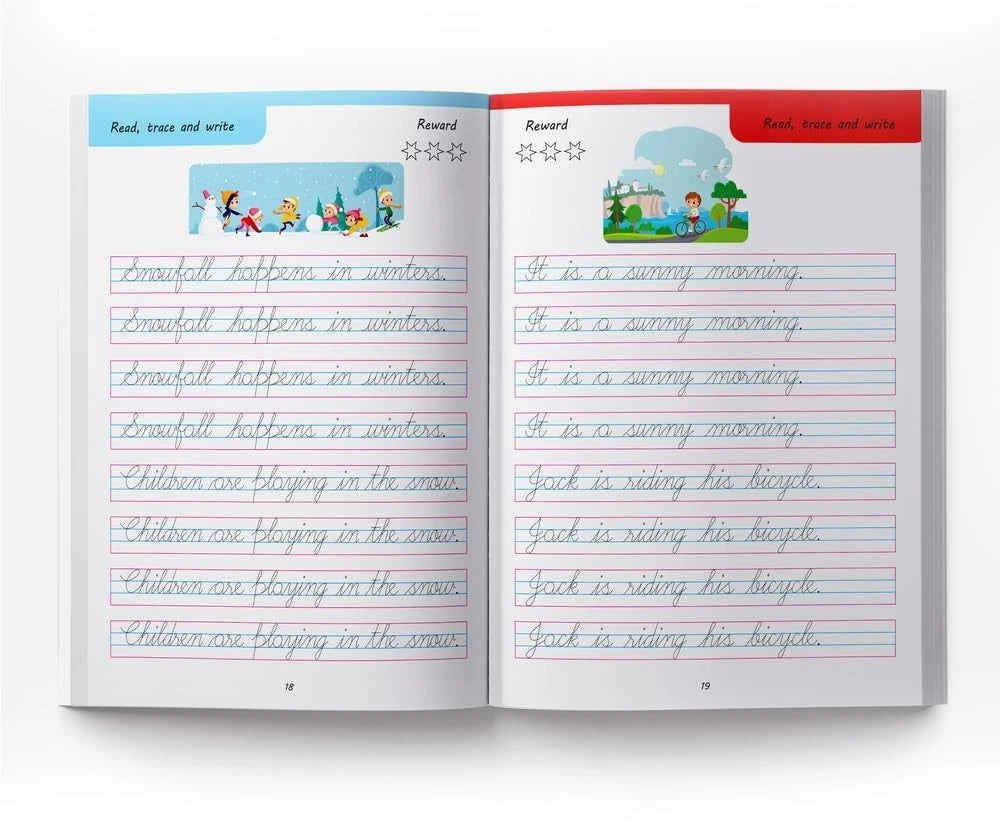 Read, trace and write
Reward
Snowfall happens in winters.
Snowfall happens in winters.
Snowfall happens in winters.
Snowfall happens in winters.
Children are playing in the snow.
Children are playing in the snow.
Children are playing in the snow.
Children are playing in the snow.
18
Reward
Read, trace and write
It is a sunny morning.
It is a sunny morning.
It is a sunny morning.
It is a sunny morning.
Jack is riding his bicycle.
Jack is riding his bicycle.
Jack is riding his bicycle.
Jack is riding his bicycle.
19